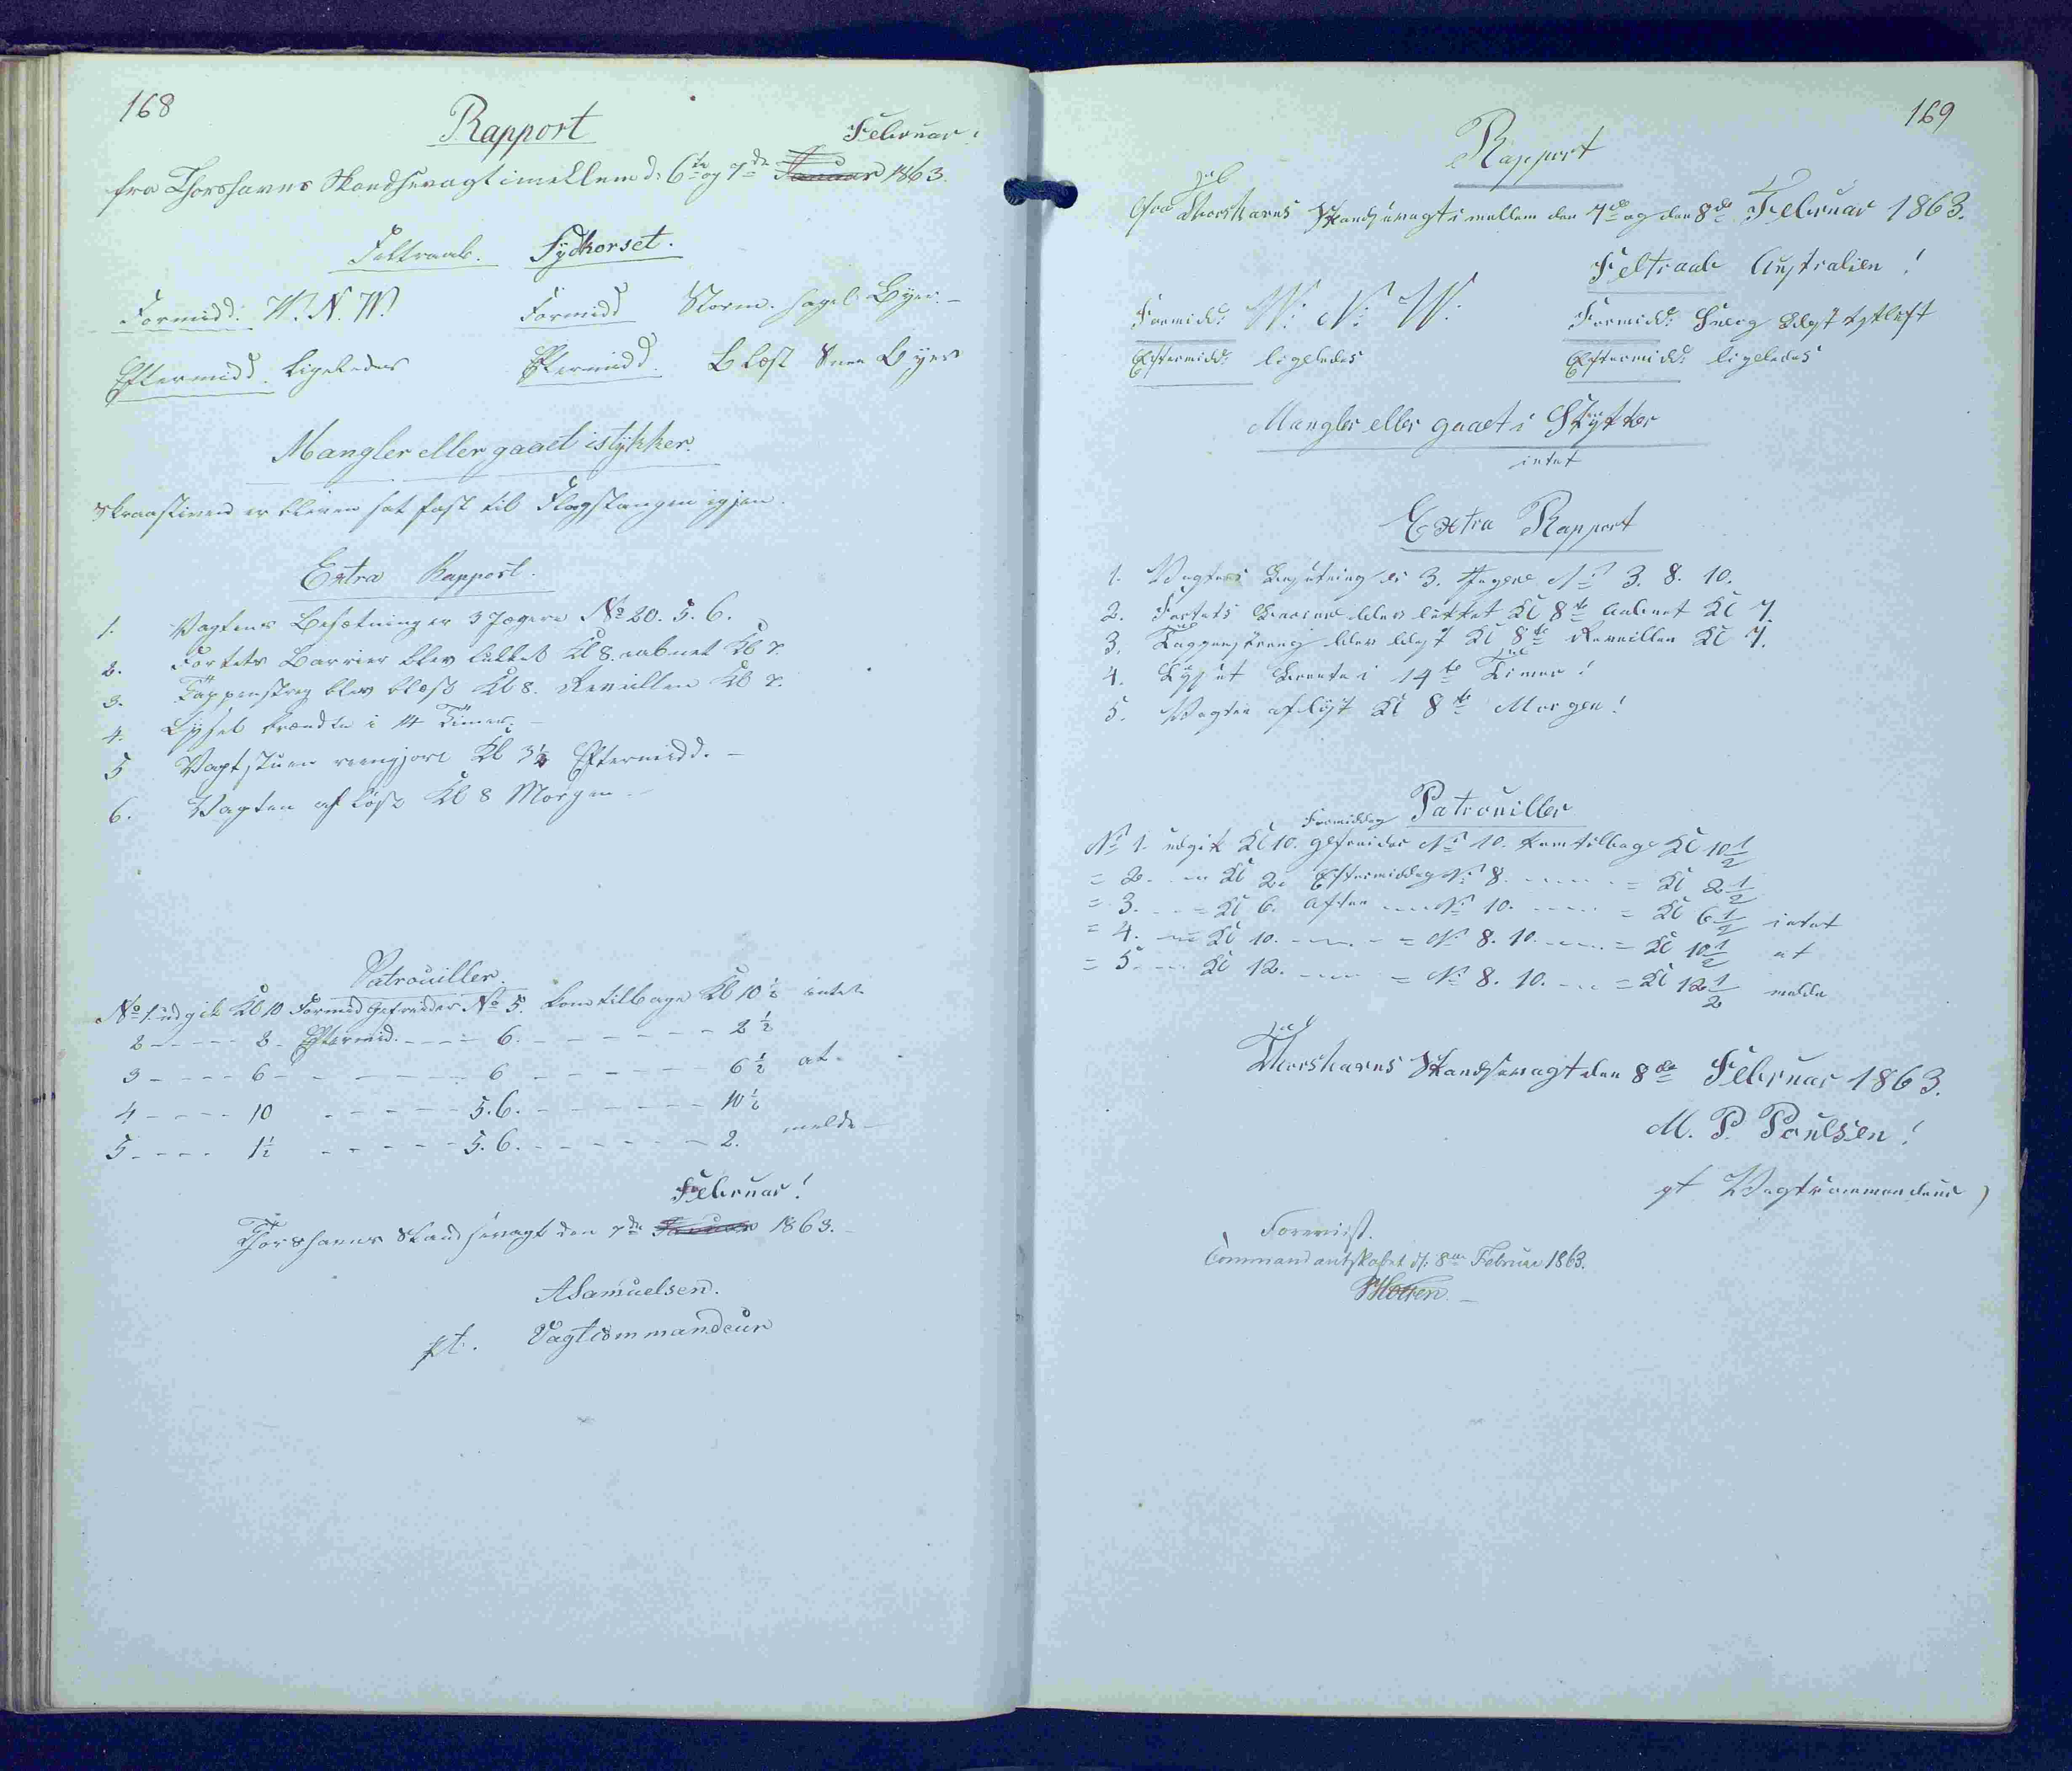 168
Rapport
Februar!
fra Thorshavns Skandsevagt imellem d: 6te og 7de Januar 1863.
Feltraab. Sydkorset.
Formidd: W. N. W. Formidd Storm. Hagel Byer. -
Eftermidd. ligeledes Eftermidd. Blæst Snee Byer
Mangler eller gaaet istykker.
Skraastiveren er bleven sat fast til Flagstangen igjen.
Extra Rapport.
1. Vagtens Besætning er 3 Jægere No 20. 5. 6.
2. Fortets Barrier blev lukket Kl 8. aabnet Kl 7.
3. Tappenstreg blev blæst Kl 8. Reveillen Kl 7.
4. Lyset brændte i 14 Timer. -
5 Vagtstuen reengjort Kl 3½ Eftermidd. -
6. Vagten afløst Kl 8 Morgen. -
Patrouiller.
No 1. udgik Kl 10 Formid Gefreider No 5. kom tilbage Kl 10½ intet
2 - - - - - 2 - Eftermid. - - - - 6. - - - - - - 2½
3 - - - - 6 - - - - - - - 6 - - - - - - - 6½ at
4 - - - - 10 - - - - - 5. 6. - - - - - - - 10½
5 - - - - 1½ - - - - - 5. 6. - - - - - - - 2. melde -
Februar!
Thorshavns Skandsevagt den 7de Januar 1863. -
A Samuelsen.
pt. Vagtcommandeur
169
Rapport
fra Thorshavns Skandsevagt imellem den 7de og den 8de Februar 1863.
Feltraab Australien!
Formidd: W: N: W: Formidd: Sneeg Blæst tykluft
Eftermidd: ligeledes Eftermidd: ligeledes
Mangler eller gaaet i Stykker
intet
Extra Rapport
1. Vagtens Besætning er 3. Jægere No 3. 8. 10.
2. Fortets Barriere blev lukket Kl 8te Aabnet Kl 7.
3. Tappenstreng blev blæst Kl 8te Reveillen Kl 7.
4. Lyset Brente i 14te Timer!
5. Vagten afløst Kl 8te Morgen!
Patrouiller
Formiddag
No 1. udgik Kl 10. Gefreider No 10. kom tilbage Kl 10½
= 2. - = Kl 2. Eftermiddag No 8. - - - - = Kl 2½
= 3. - - = Kl 6. Aften - - - No 10. - - - - = Kl 6½ intet
= 4. - = Kl 10. - - - - = No 8. 10. - - - = Kl 10½ at
= 5. - - Kl 12. - - - - = No 8. 10. - - = Kl 12½ melde
Thorshavns Skandsevagt den 8de Februar 1863.
M. P. Poulsen!
pt Vagtcommandeur
Foreviist.
Commandantskabet d: 8de Februar 1863.